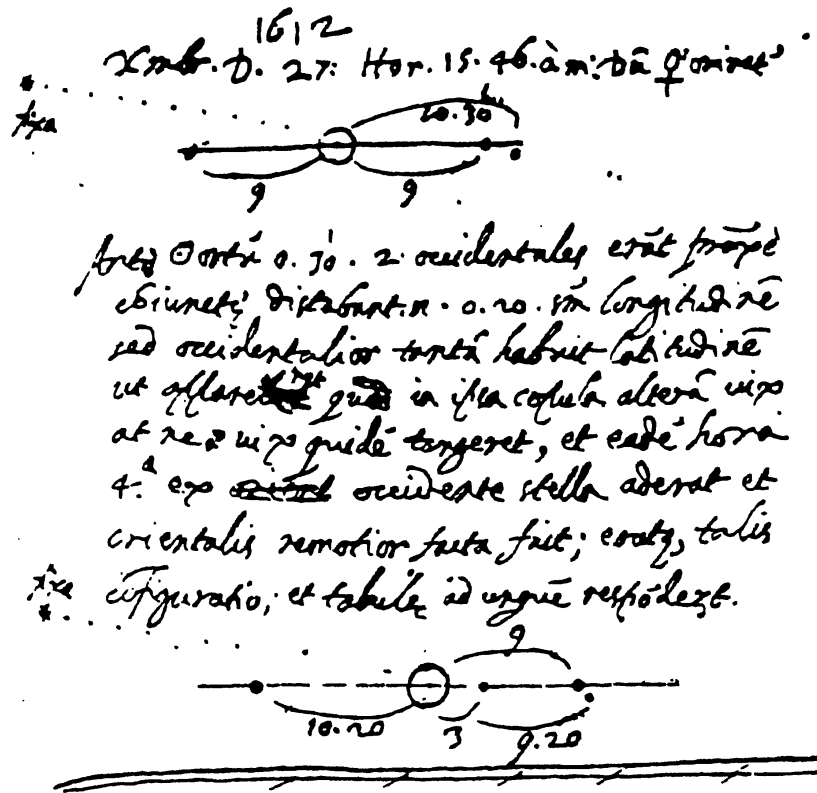 1612
Xmbr. D. 27: Hor. 15. 46. à m: Dũ ♀ oriret'
fixa
10.30
9 9
Ante ☉ ortũ 0. 30'. 2 occidentales erãt prope
distabant. n. 0.20. longitudinẽ
sed occidentalior tantã habuit latitudinẽ
ut in alterã uix
at ne uix quidẽ tangeret, et eadẽ hora
4.a ex occidente stella aderat et
orientalis remotior facta fuit; eratq, talis
cõfiguratio, et tabulę ad unguẽ respõdent.
fixa
9
10.20 3 9.20